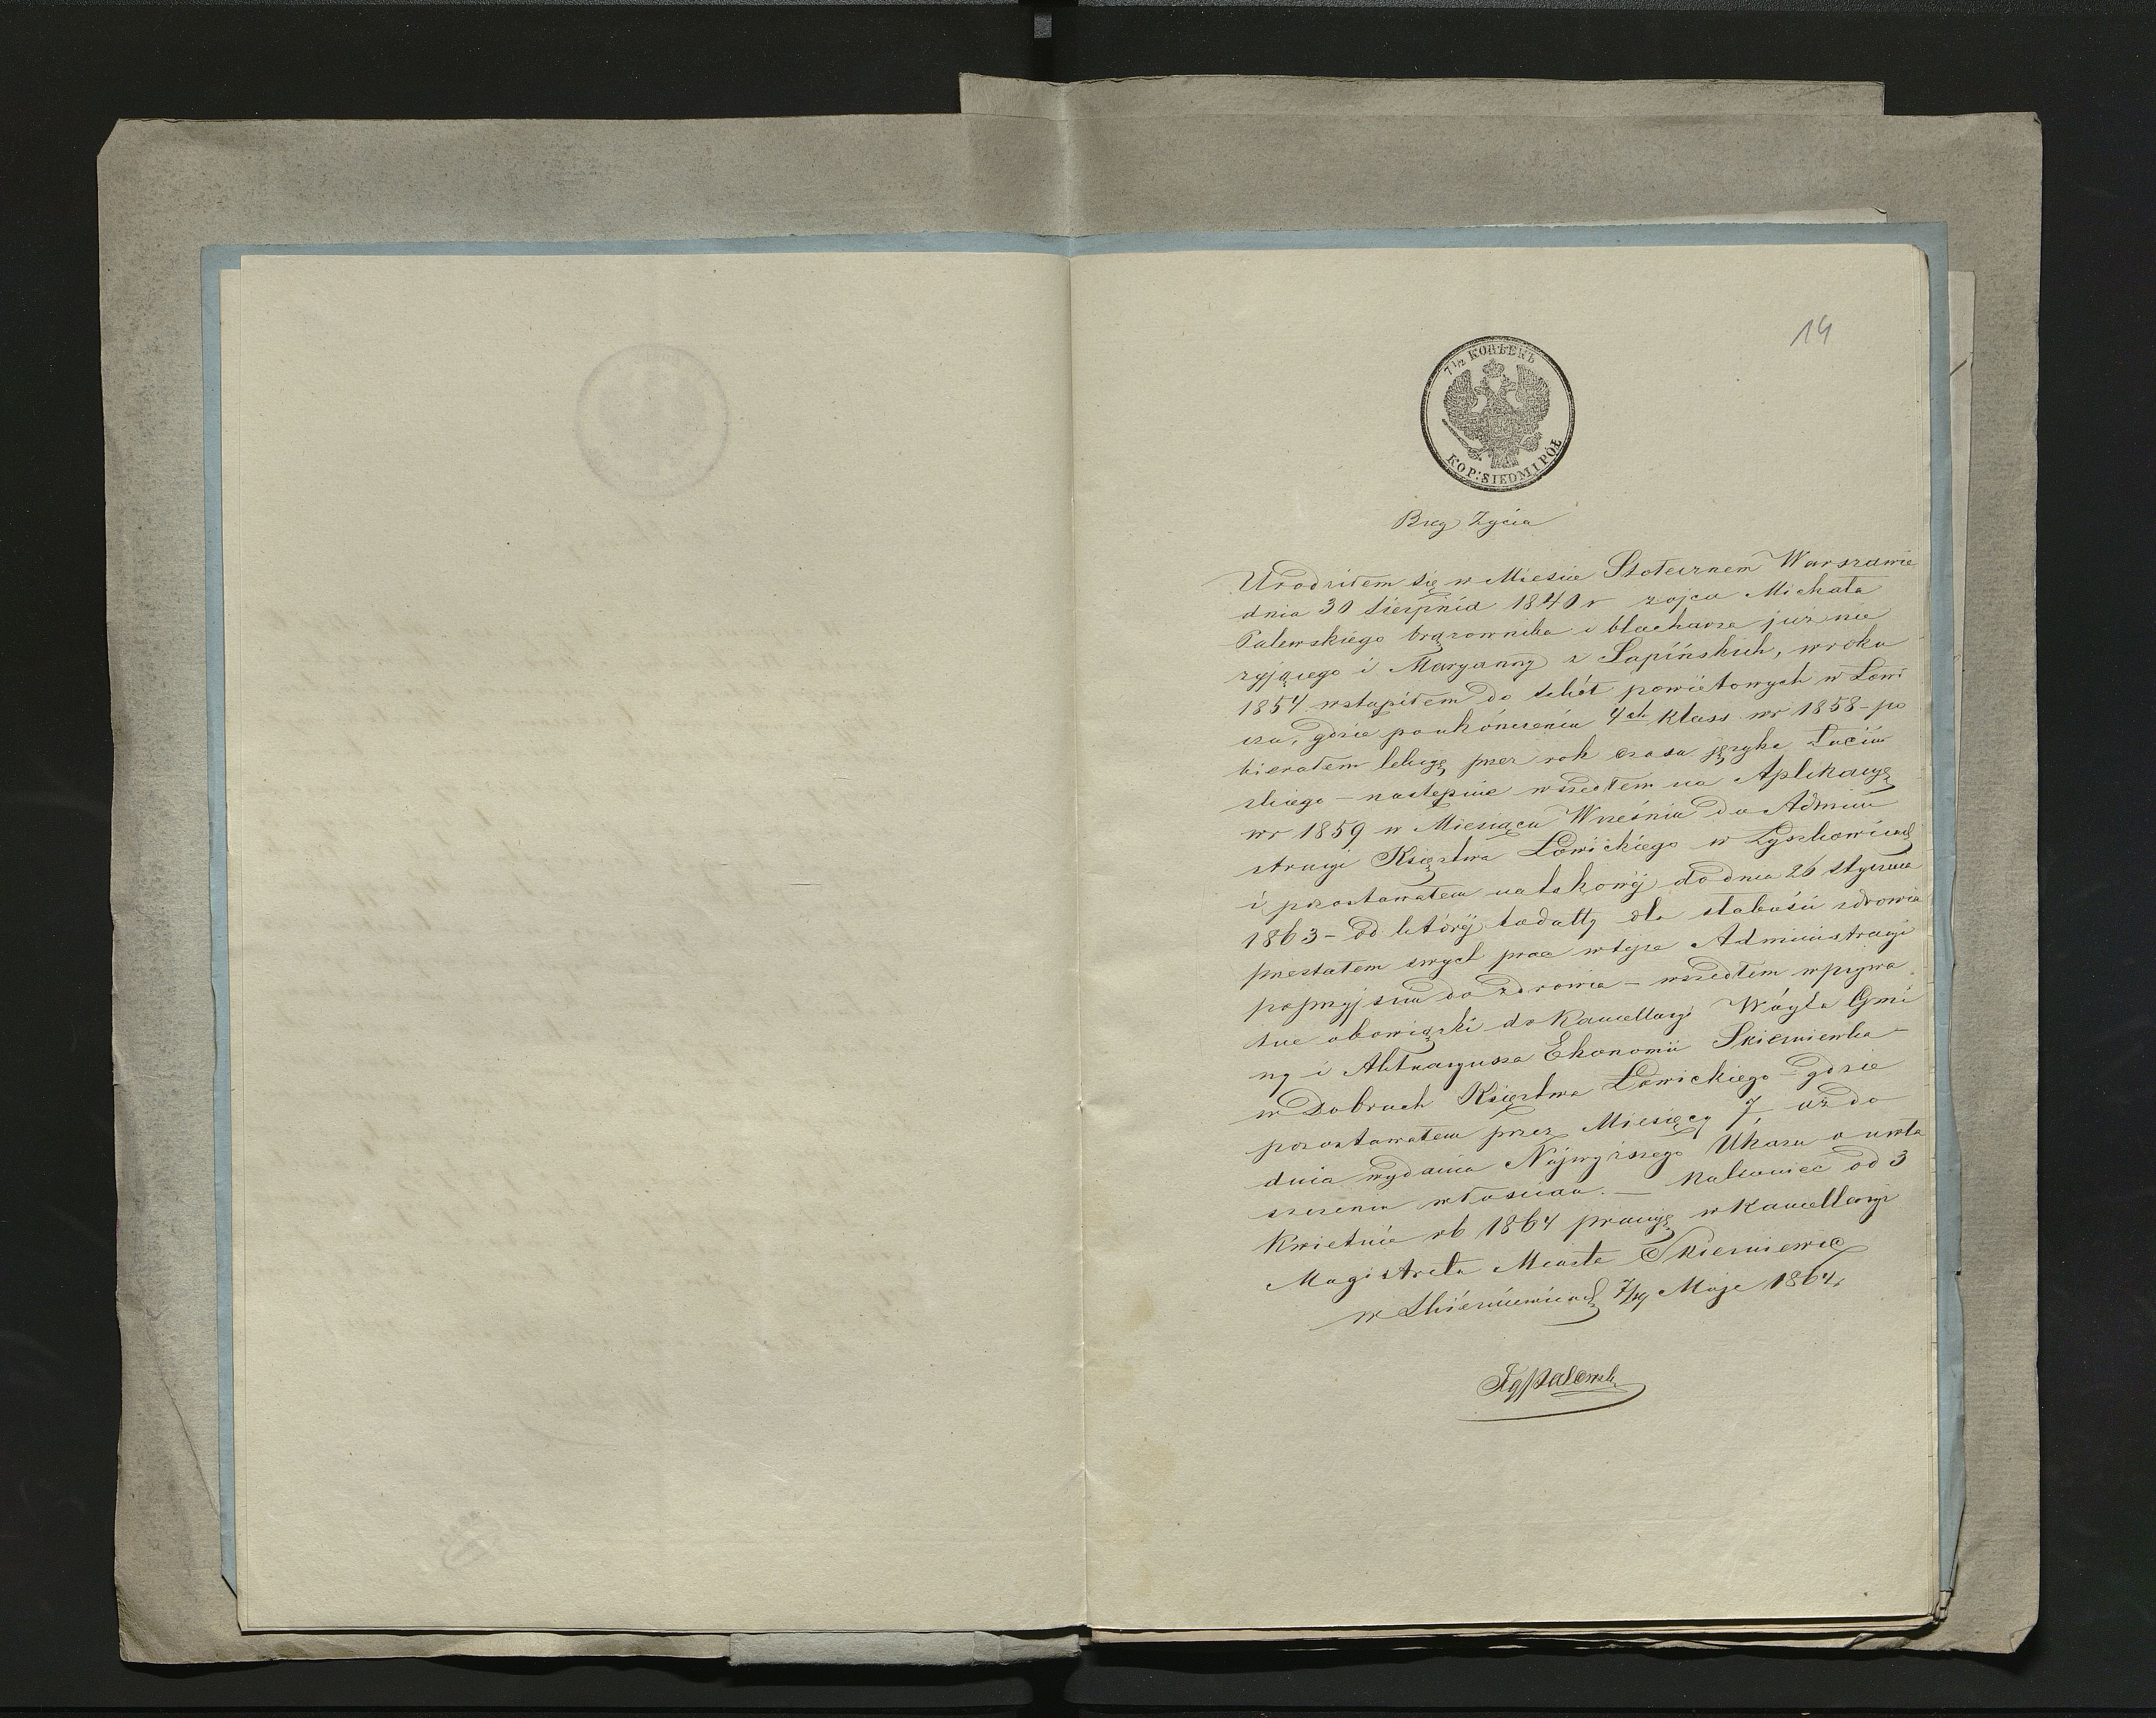 14
7½ КОПѢЕКЪ
KOP: SIEDM I PÓŁ
Bieg Życia
Urodziłem się w Mieście Stołecznem Warszawie
dnia 30 Sierpnia 1840 r z ojca Michała
Palewskiego brązownika i blacharza już nie
żyjącego i Maryanny z Łapińskich, w roku
1854 wstąpiłem do szkół powiatowych w Łowi
czu, gdzie po ukończeniu 4ch klass w r 1858 - po
bierałem lekcyę przez rok czasu języka Łaciń
skiego - następnie wszedłem na Aplikacyę
w r 1859 w Miesiącu Wrześniu do Admini
stracyi Księztwa Łowickiego w Łyszkowicach
i pozostawałem na takowéj do dnia 26 stycznia
1863 - od któréj to daty dla słabości zdrowia
przestałem swych prac w tejże Administracyi
po przyjściu do zdrowia - wszedłem w prywa
tne obowiązki do Kancellaryi Wójta Gmi
ny i Aktuaryusza Ekonomii Skierniewka -
w Dobrach Księztwa Łowickiego - gdzie
pozostawałem przez Miesięcy 7 aż do
dnia wydania Najwyższego Ukazu o uwła
szczeniu włościan. - Nakoniec od 3
Kwietnia rb 1864 pracuję w Kancellaryi
Magistratu Miasta Skierniewic
w Skierniewicach 7/19 Maja 1864 r
Ig Palewski